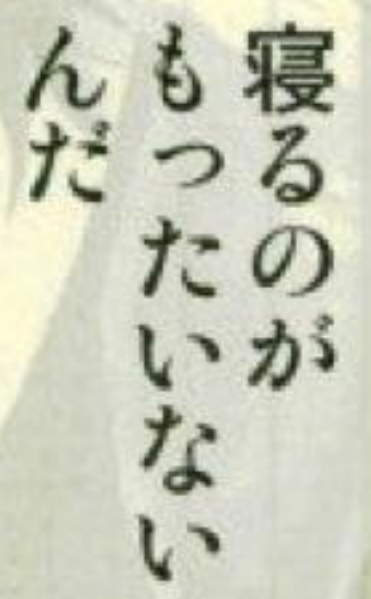 寝るのが
もったいない
んだ